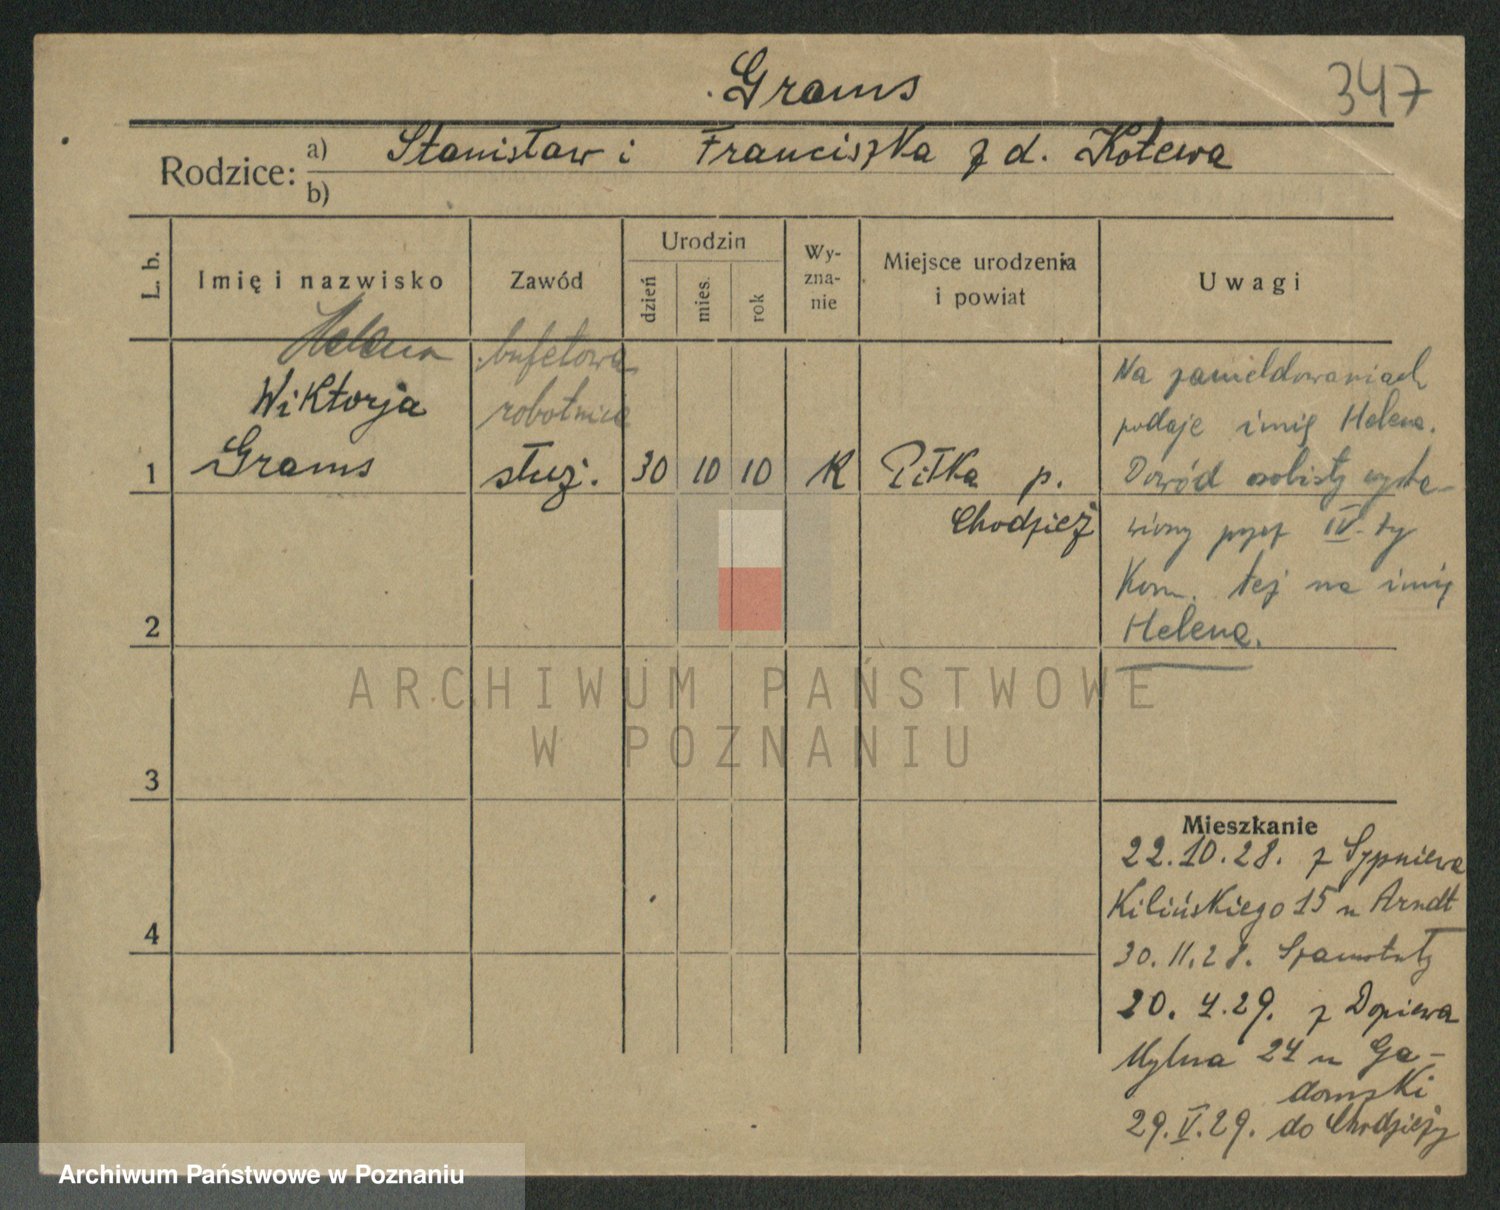 Grams
347
Rodzice:
a) Stanisław i Franciszka z d. Kotewa
b)
L. b.
Imię i nazwisko
Zawód
Urodzin
dzień
mies.
rok
Wy-
zna-
nie
Miejsce urodzenia
i powiat
Uwagi
Helena
Wiktorja
1 Grams
bufetowa
robotnica
służ.
30 10 10 K
Piłka p.
Chodzież
Na zameldowaniach
podaje imię Helena.
Dowód osobisty wysta-
wiony przez IV-ty
Kom. tej na imię
Helena.
2
3
4
Mieszkanie
22.10.28. z Sypniewa
Kilińskiego 15 u Arndt
30.11.28. Szamotuły
20. 4.29. z Dopiewa
Mylna 24 u Ga-
domski
29.V.29. do Chodzieży
ARCHIWUM PAŃSTWOWE
W POZNANIU
Archiwum Państwowe w Poznaniu